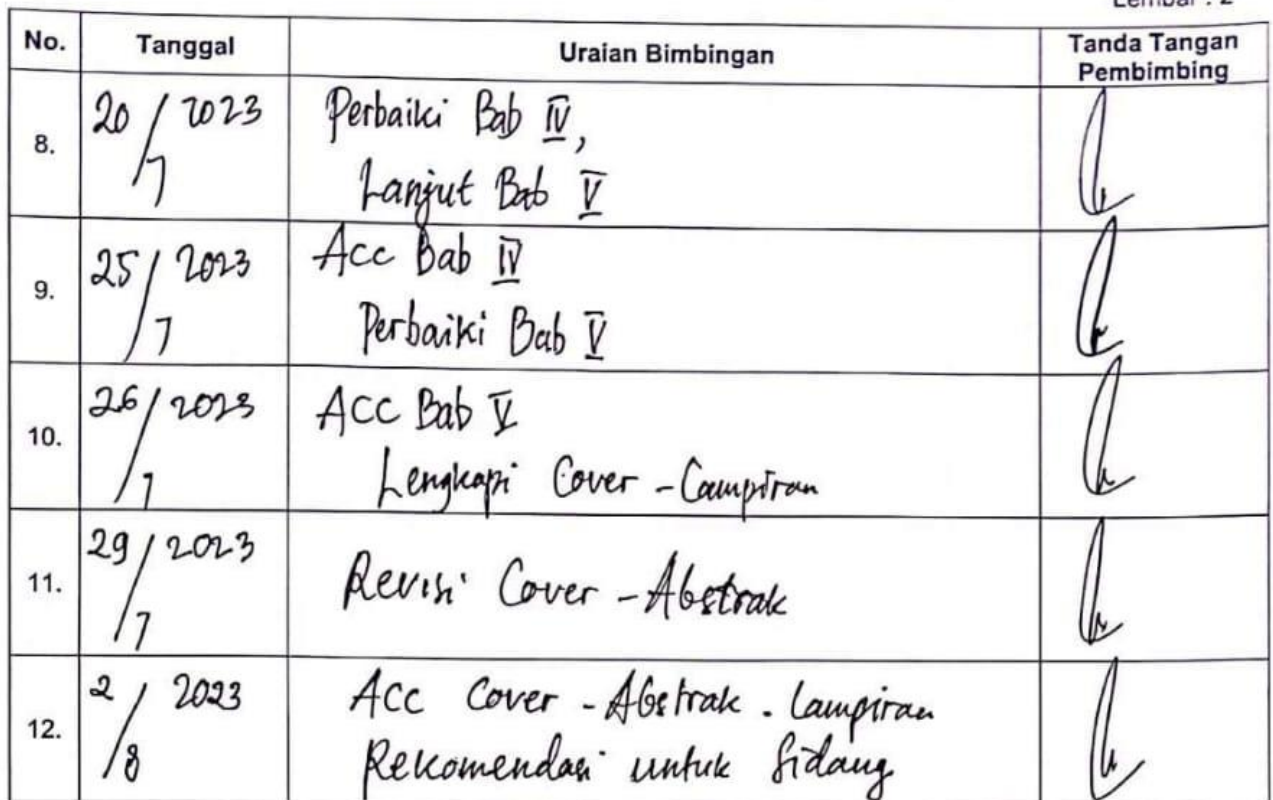 Lembar : 2
No. Tanggal Uraian Bimbingan Tanda Tangan
Pembimbing
8. 20/7 2023 Perbaiki Bab IV,
Lanjut Bab V
9. 25/7 2023 Acc Bab IV
Perbaiki Bab V
10. 26/7 2023 ACC Bab V
Lengkapi Cover - Lampiran
11. 29/7 2023 Revisi Cover - Abstrak
12. 2/8 2023 ACC Cover - Abstrak - Lampiran
Rekomendasi untuk Sidang